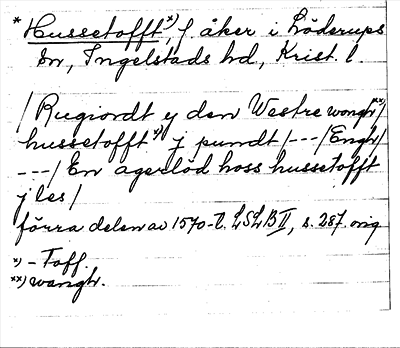 * Hussetofft*), f. åker i Löderups
sn, Ingelstads hd, Krist. l.
/Rugiordt y den Westre wongr**)/
hussetofft*) j pundt/---/Engh/
---/En agerlöd hoss hussetofft
j les/
förra delen av 1570-t. LSLB II, s. 287. orig
*) - Toff.
**) wangh.